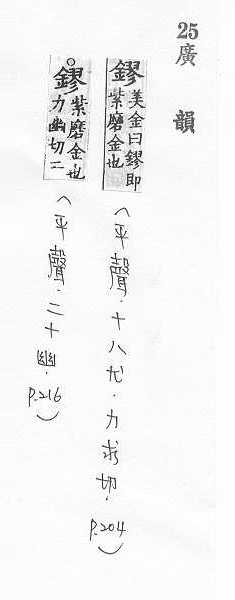 25
廣韻
鏐美金曰鏐即
紫磨金也
(平聲．十八尤．力求切．P.204)
○鏐紫磨金也
力幽切二
(平聲．二十幽．P.216)